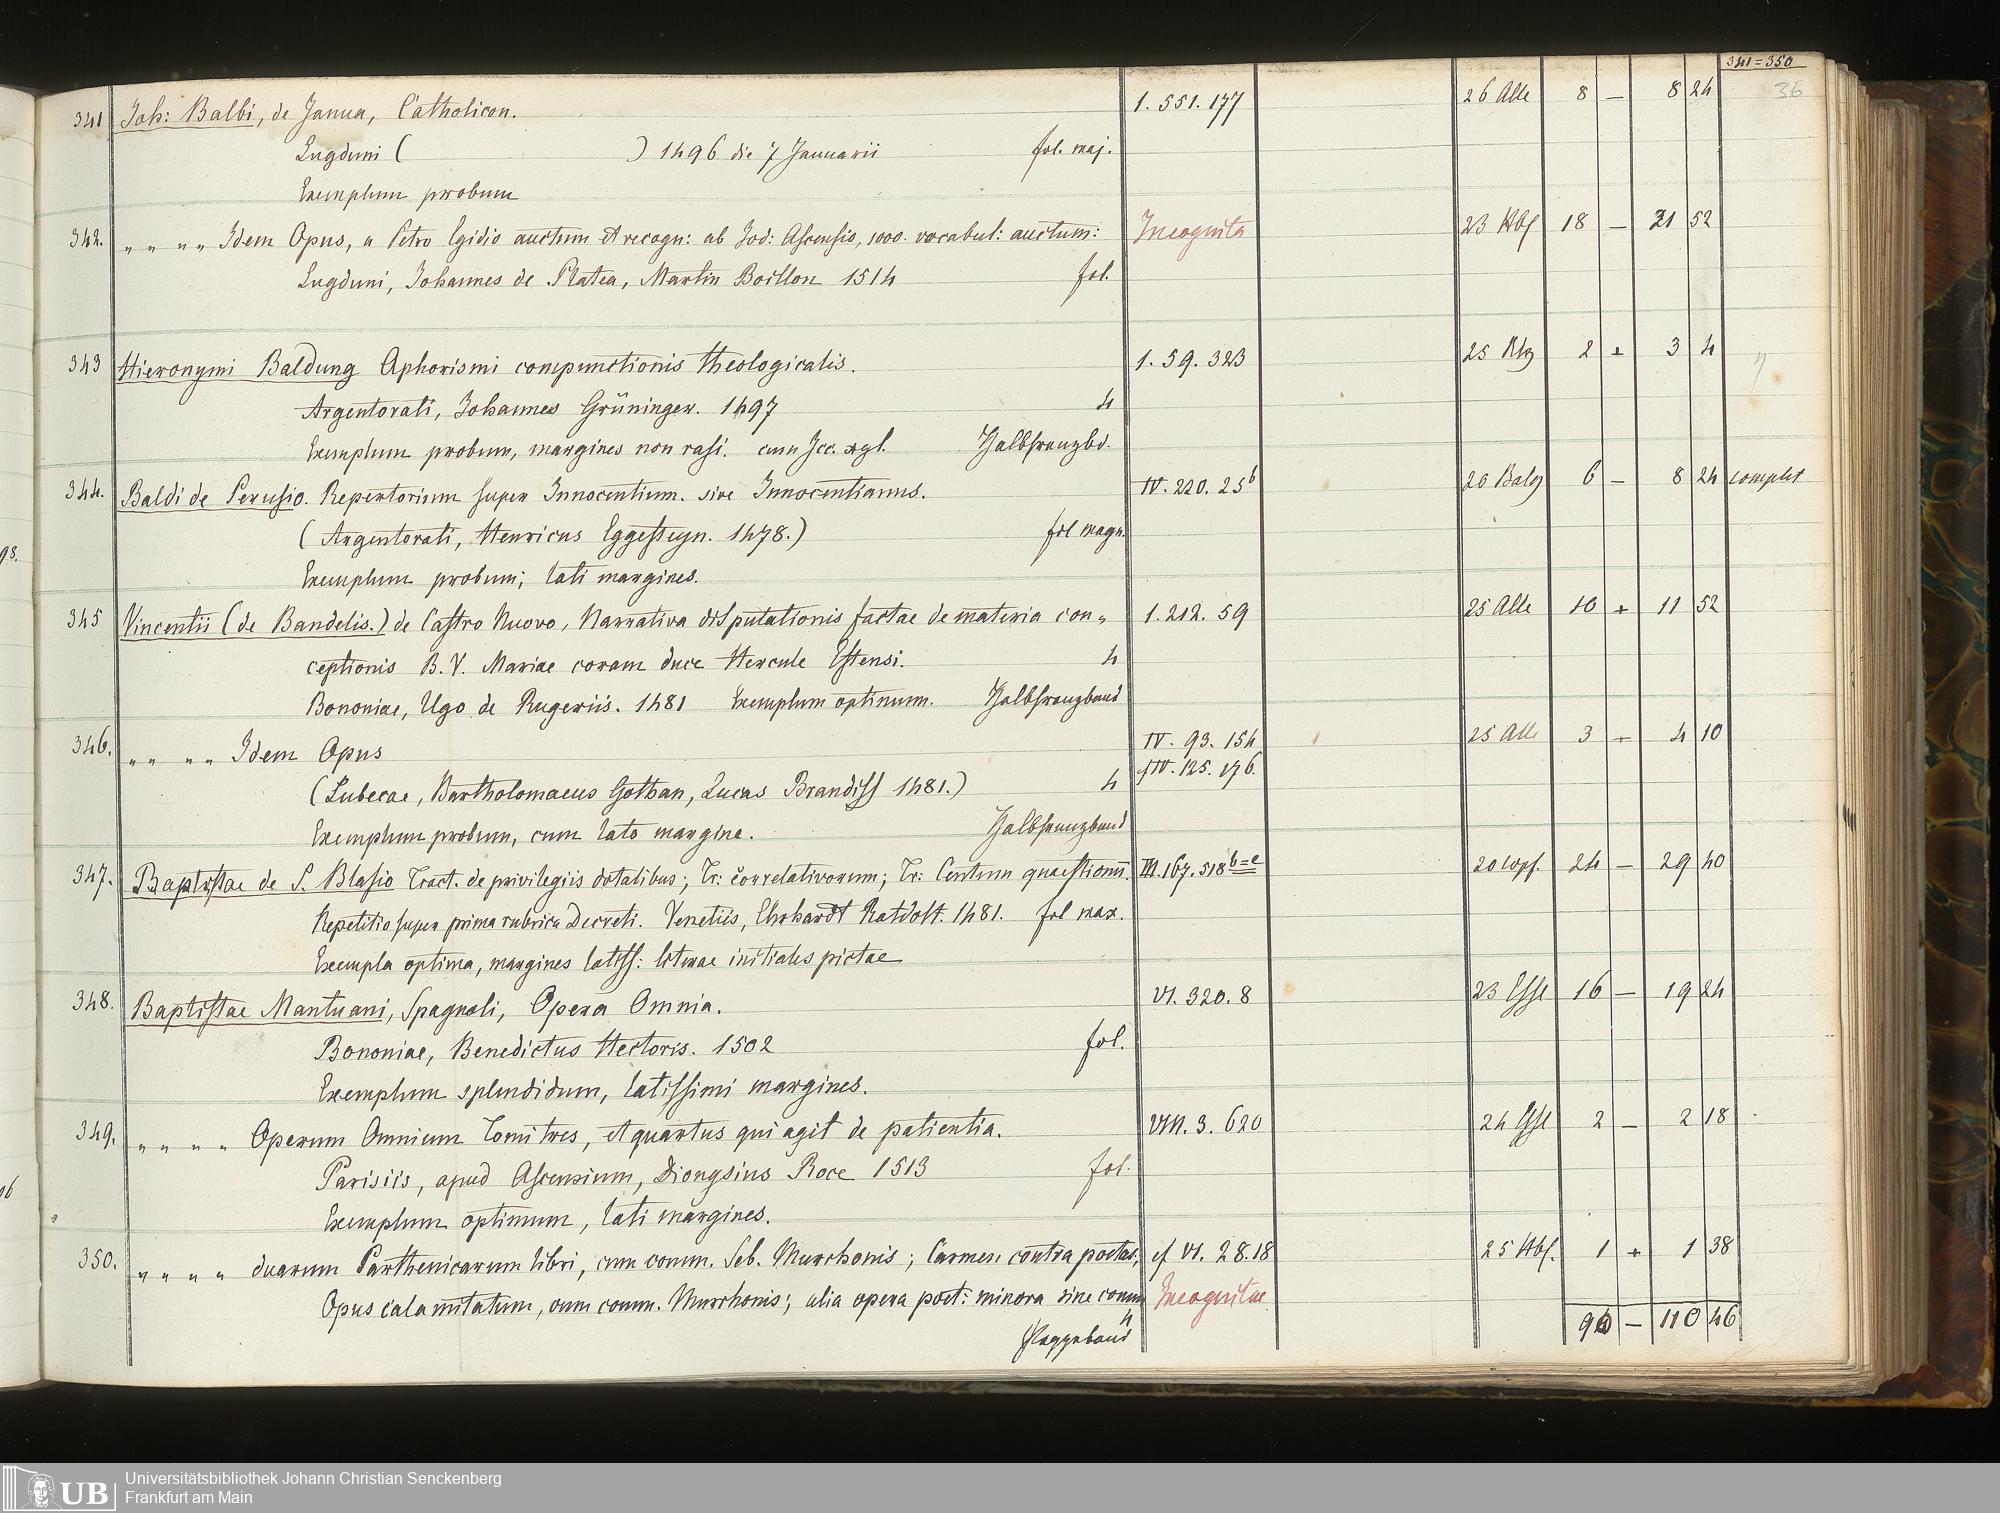 341=350
36
341 Joh: Balbi, de Janua, Catholicon. 1. 551. 177 26 Alle 8 — 8 24
Lugduni ( ) 1496 die 7 Januarii fol. maj.
Exemplum probum
342. „ „ „ „ Idem Opus, a Petro Egidio auctum et recogn: ab Jod: Ascensio, 1000. vocabul: auctum: Incognita 23 Hbf 18 — 21 52
Lugduni, Johannes de Platea, Martin Boillon 1514 fol.
343 Hieronymi Baldung Aphorismi compunctionis theologicalis. 1. 59. 323 25 2 + 3 4
Argentorati, Johannes Grüninger. 1497 4
Exemplum probum, margines non rasi. cum Icc. xyl. Halbfranzbd.
344. Baldi de Perusio. Repertorium super Innocentium. sive Innocentianus. IV. 220. 25b 26 6 — 8 24 complet
(Argentorati, Henricus Eggesteyn. 1478.) fol magn.
Exemplum probum; lati margines.
345 Vincentii (de Bandelis.) de Castro Nuovo, Narrativa disputationis factae de materia con„ 1. 212. 59 25 Alle 10 + 11 52
ceptionis B. V. Mariae coram duce Hercule Estensi. 4
Bononiae, Ugo de Rugeriis. 1481 Exemplum optimum. Halbfranzband
346. „ „ „ „ Idem Opus IV. 93. 154 25 Alle 3 + 4 10
cf IV. 125. 176.
(Lubecae, Bartholomaeus Gothan, Lucas Brandiss 1481.) 4
Exemplum probum, cum lato margine. Halbfranzband
347. Baptistae de S. Blasio Tract. de privilegiis dotalibus; Tr: correlativorum; Tr: Centum quaestionū. III. 167. 518b=e 20 24 — 29 40
Repetitio super prima rubrica Decreti. Venetiis, Ehrhardt Ratdolt. 1481. fol max.
Exempla optima, margines latiss: literae initiales pictae
348. Baptistae Mantuani, Spagnoli, Opera Omnia. VI. 320. 8 23 Esse 16 — 19 24
Bononiae, Benedictus Hectoris. 1502 fol.
Exemplum splendidum, latissimi margines.
349. „ „ „ „ Operum Omnium Tomi tres, et quartus qui agit de patientia. VIII. 3. 620 24 Esse 2 — 2 18
Parisiis, apud Ascensium, Dionysius Roce 1513 fol.
Exemplum optimum, lati margines.
350. „ „ „ „ duarum Parthenicarum libri, cum comm. Seb. Murrhonis; Carmen contra poetas; cf VI. 28. 18 25 Hbf. 1 + 1 38
Opus calamitatum, cum comm. Murrhonis; alia opera poet: minora sine comm Incognitae
4
Pappeband
90 — 110 46
98.
06
UB Universitätsbibliothek Johann Christian Senckenberg
Frankfurt am Main